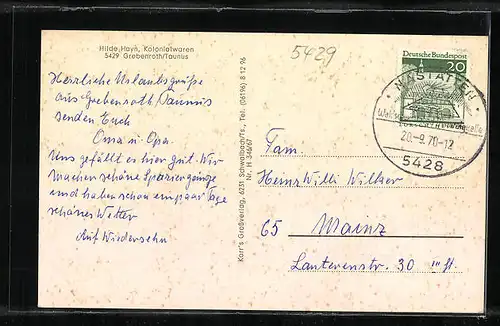 Hilde Hayn, Kolonialwaren
5429 Grebenroth/Taunus
5429
Deutsche Bundespost
20
NASTÄTTEN
20.-9.70-12
5428
Herrliche Urlaubsgrüße
aus Grebenroth/Taunus
senden Euch
Oma u. Opa.
Uns gefällt es hier gut. Wir
machen schöne Spaziergänge
und haben schon ein paar Tage
schönes Wetter
Auf Wiedersehn
Karr's Großverlag, 6231 Schwalbach/Ts., Tel. (06196) 8 12 96
Nr. H 34667
Fam.
Heinz Willi
65 Mainz
30